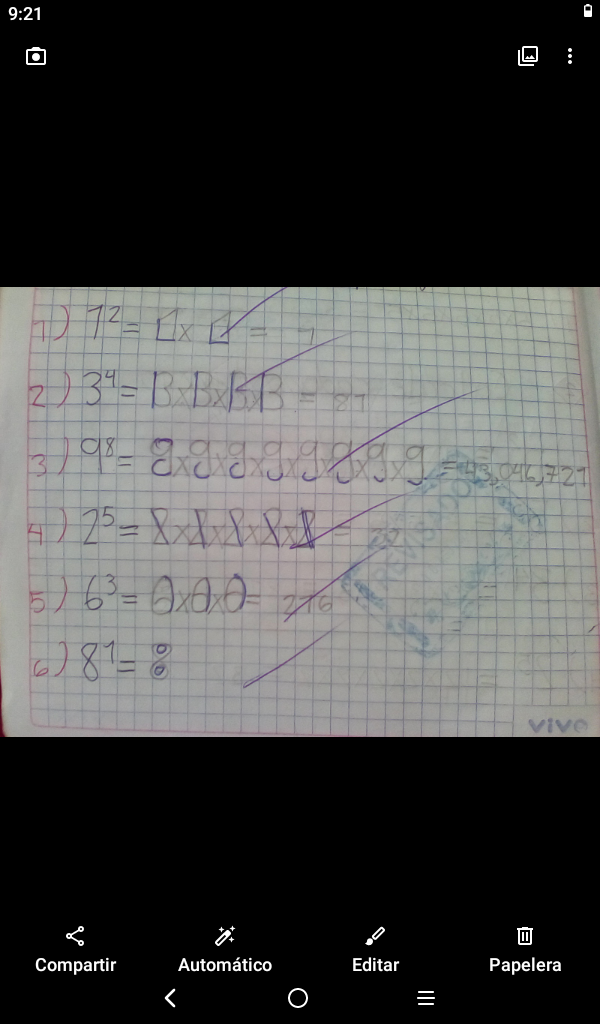 9:21
1) 1² = 1 x 1 = 1
2) 3⁴ = 3x3x3x3 = 81
3) 9⁸ = 9x9x9x9x9x9x9x9 = 43,046,721
4) 2⁵ = 2x2x2x2x2 =
5) 6³ = 6x6x6 = 216
6) 8¹ = 8
REVISADO
vivo
Compartir Automático Editar Papelera